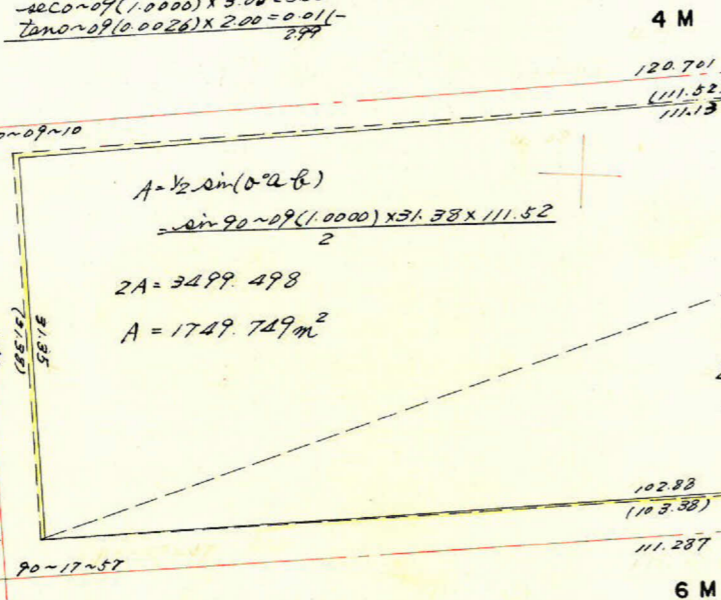 sec0~09(1.0000)×3.00=
tan0~09(0.0026)×2.00=0.01(-
2.99
4 M
120.701
(111.52
111.13
0~09~10
A=½ sin(θ°a b)
=sin 90~09(1.0000)×31.38×111.52
2
2A=3499.498
A=1749.749m²
31.35
(31.38)
102.83
(103.38)
111.287
90~17~57
6 M